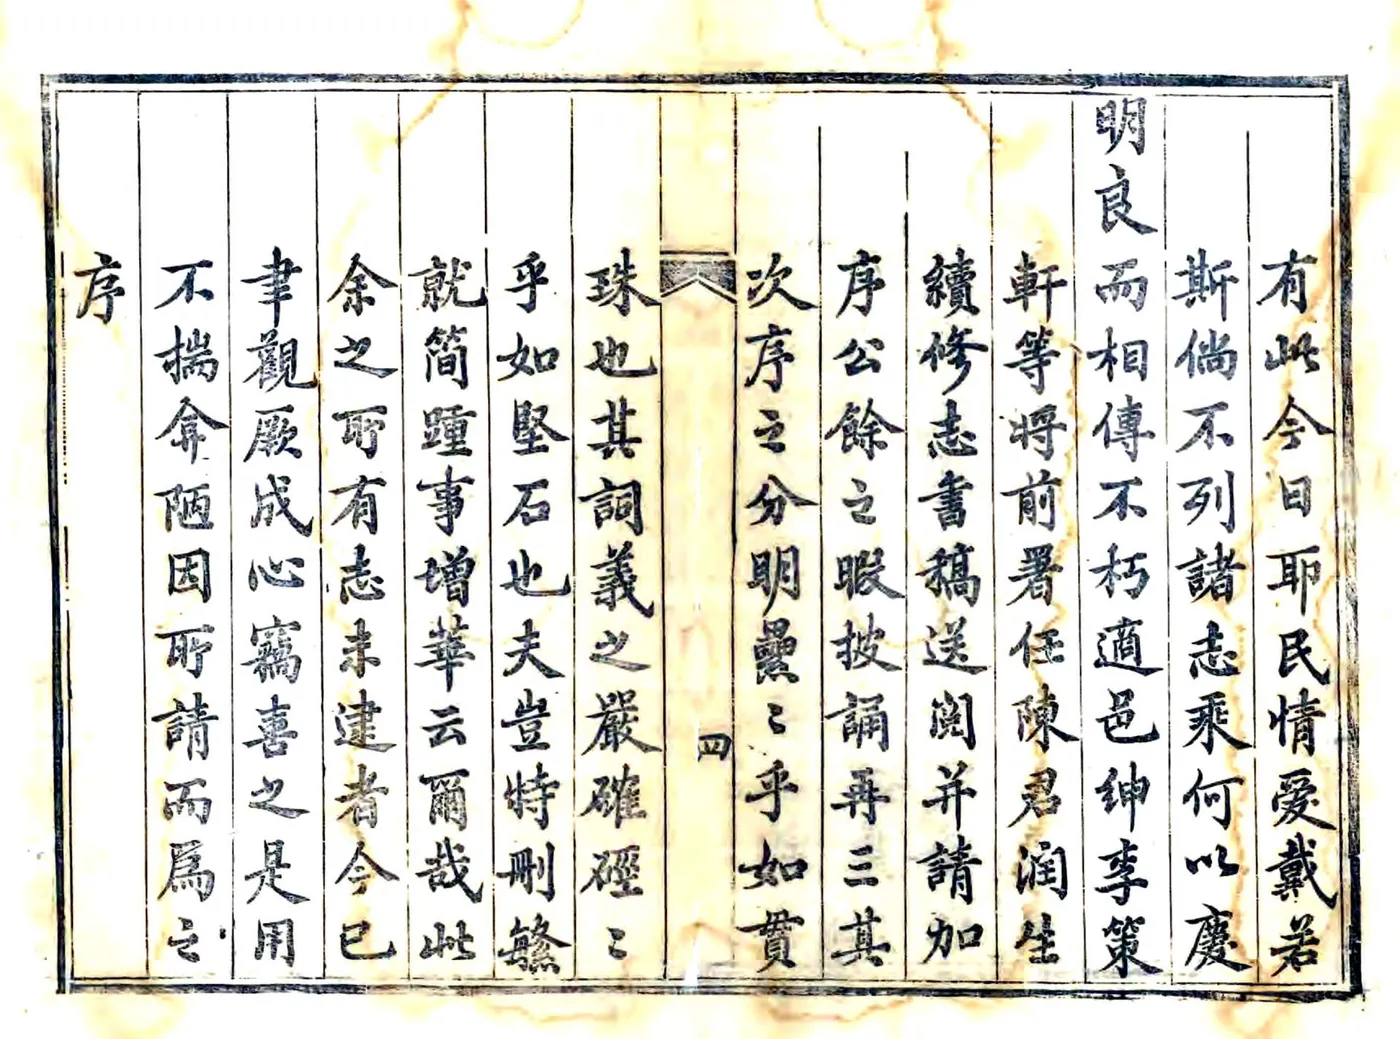 有此今日耶民情爱戴若
斯倘不列諸志乘何以慶
明良而相傳不朽適邑紳李策
軒等将前署任陳君潤生
續修志書稿送閲并請加
序公餘之暇披誦再三其
次序之分明纍〻乎如貫
四
珠也其詞義之嚴確硜〻
乎如堅石也夫豈特刪繁
就简踵事增華云爾哉此
余之所有志未逮者今已
聿觀厥成心竊喜之是用
不揣弇陋因所請而爲之
序